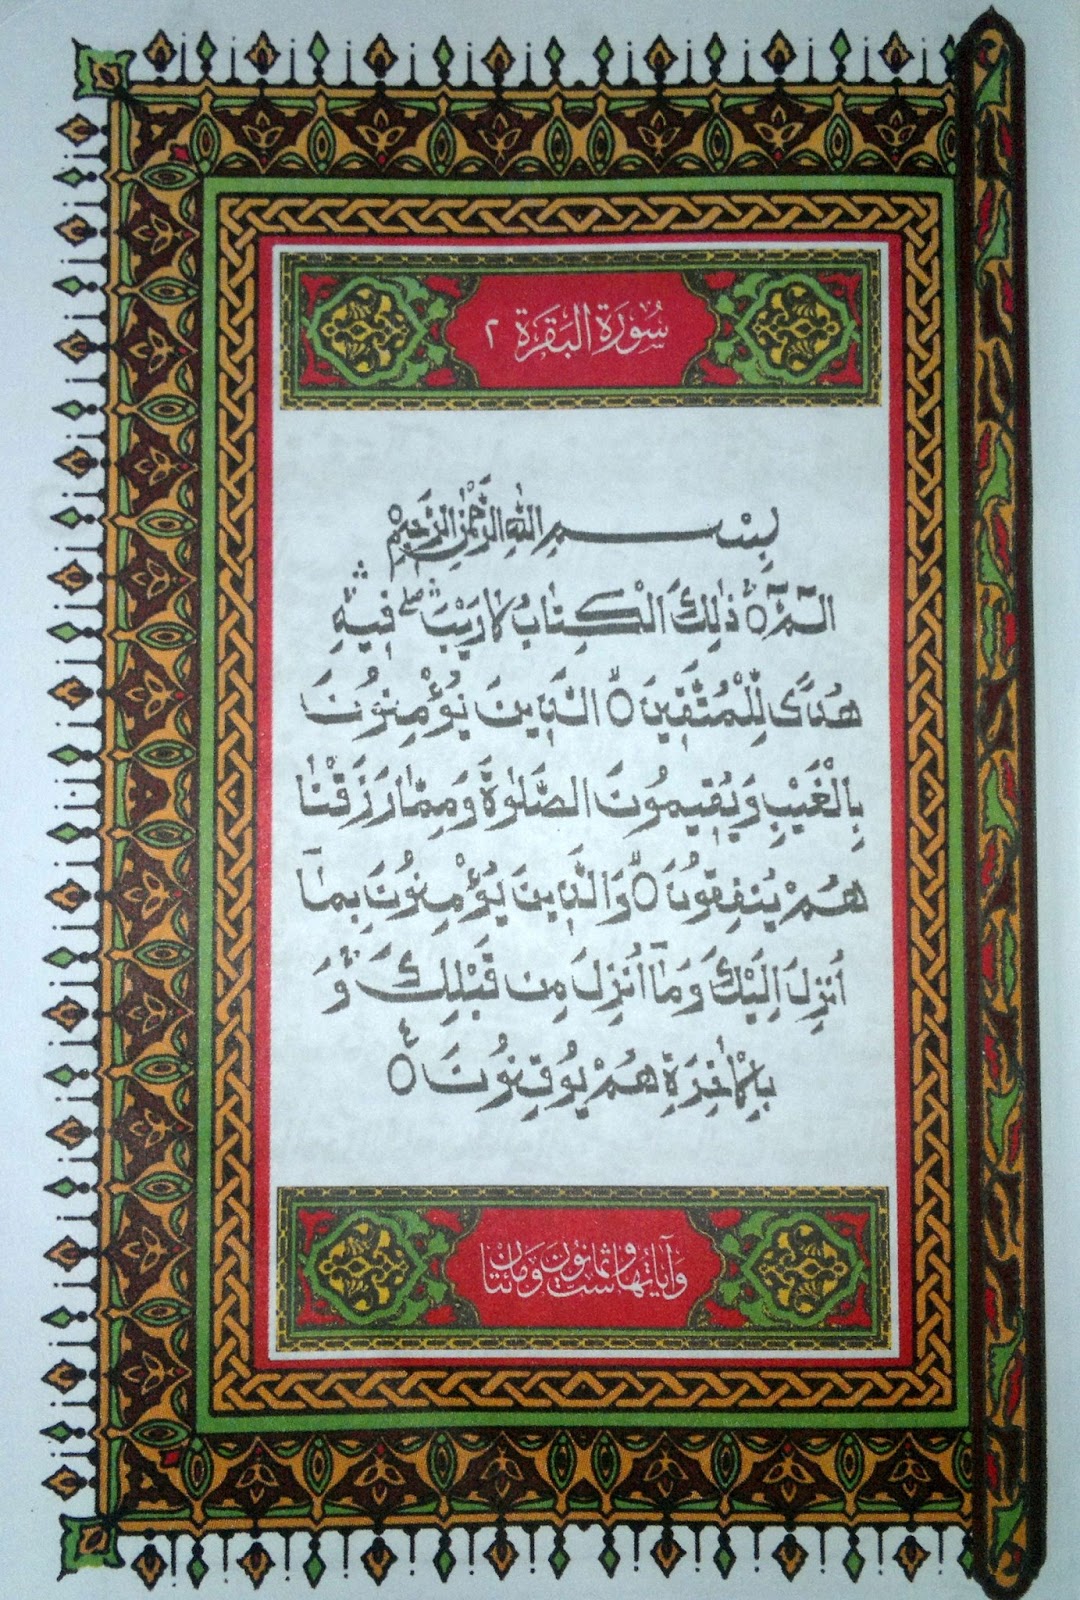 سُورَةُ البَقَرَة ٢
بِسْمِ اللهِ الرَّحْمٰنِ الرَّحِيْمِ
الٓمّٓ ۝ ذٰلِكَ الْكِتٰبُ لَا رَيْبَ ۛ ۖ فِيْهِ ۛ
هُدًى لِّلْمُتَّقِيْنَ ۝ۙ الَّذِيْنَ يُؤْمِنُوْنَ
بِالْغَيْبِ وَيُقِيمُونَ الصَّلٰوةَ وَمِمَّا رَزَقْنٰا
هُمْ يُنفِقُونَ ۝ۙ وَالَّذِينَ يُؤْمِنُوْنَ بِمَآ
اُنْزِلَ اِلَيْكَ وَمَآ اُنْزِلَ مِن قَبْلِكَ ۛ وَ
بِالْاٰخِرَةِ هُمْ يُوْقِنُوْنَ ۝٤
وَآيَاتُهَا سِتٌّ وَثَمَانُونَ وَمِائَتَانِ